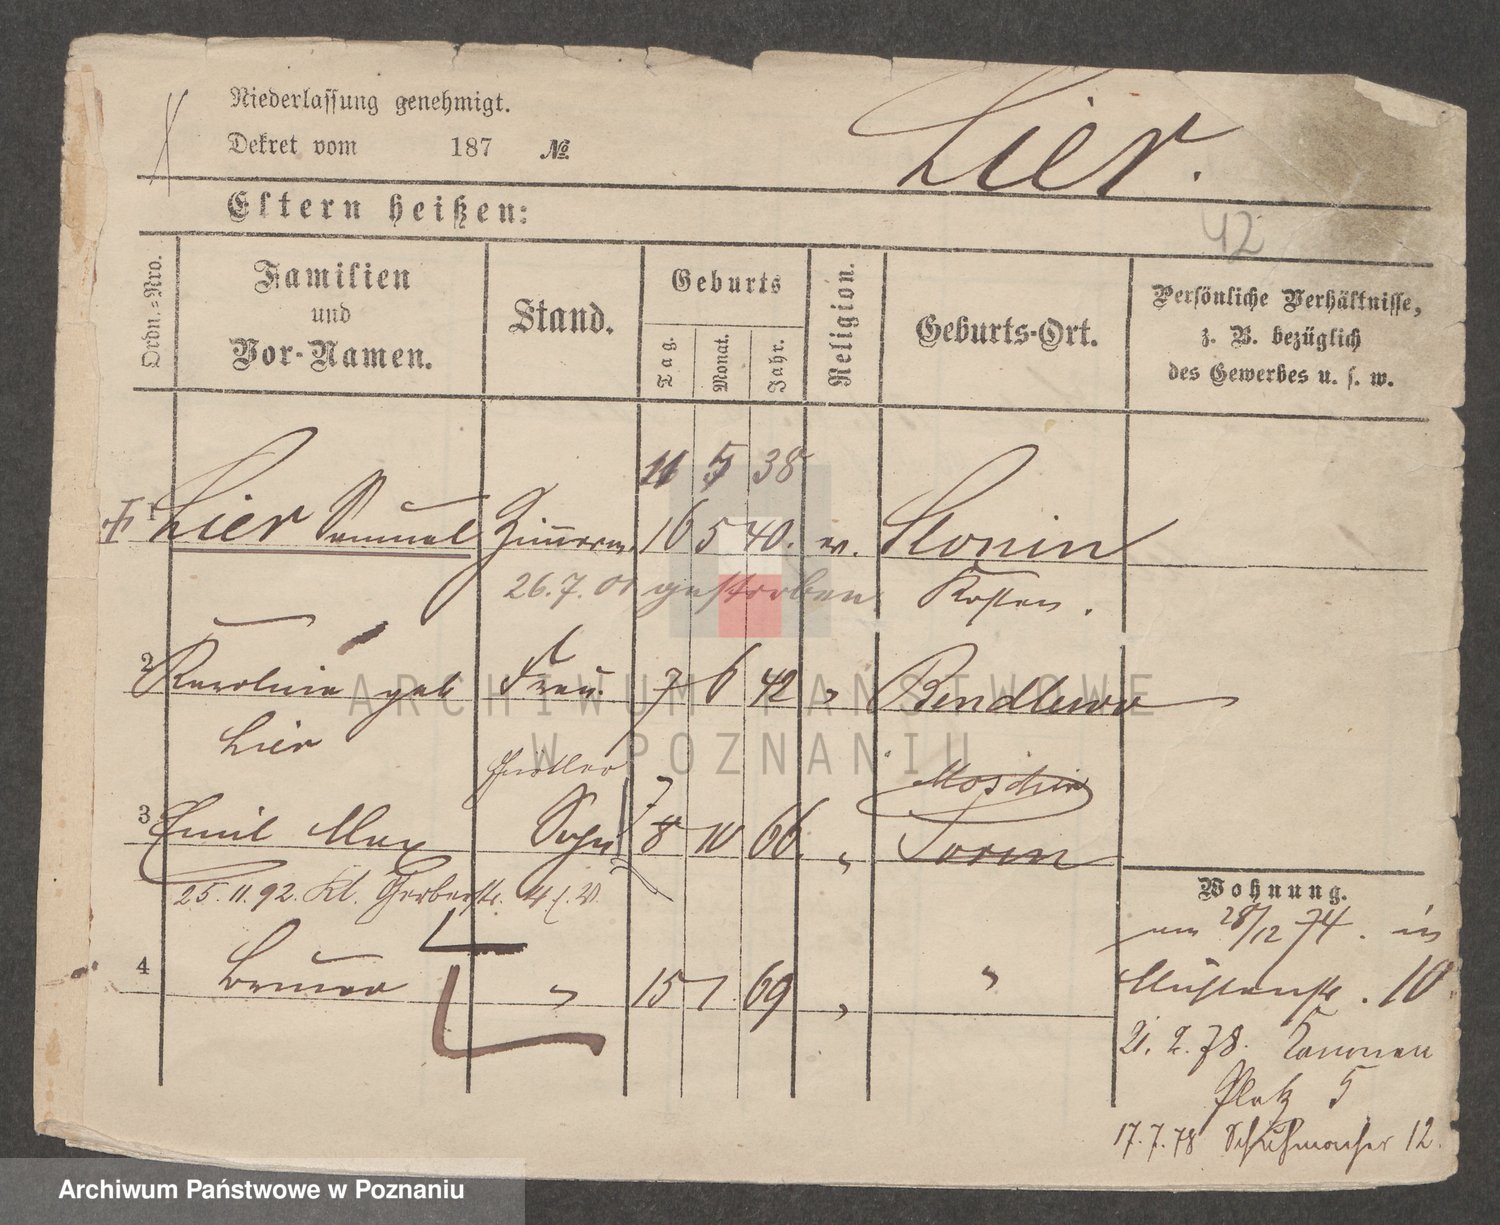 Niederlassung genehmigt.
Dekret vom 187 №.
Lier.
Eltern heißen:
42
Ordn.=Nro.
Familien
und
Vor-Namen.
Stand.
Geburts
Tag.
Monat.
Jahr.
Religion.
Geburts-Ort.
Persönliche Verhältnisse,
z. B. bezüglich
des Gewerbes u. s. w.
11 5 38
1 Lier Samuel Zimmerm. 16 5 40. ev. Slonin
26.7.01 gestorben Kosten.
2 Karoline geb Frau. 7 6 42 " Bendlewo
Lier
Moschin
3 Emil Max Sohn 8 10 66. "
25.11.92. Kl. Gerberstr. 4
4 Bruno " 15 7. 69 " "
Wohnung.
am 28/12 74. in
10
21. 2. 78. Kanonen
Platz 5
17.7.78 Schuhmacher 12.
ARCHIWUM PAŃSTWOWE
W POZNANIU
Archiwum Państwowe w Poznaniu